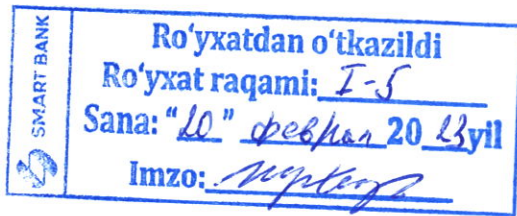 SMART BANK
Ro'yxatdan o'tkazildi
Ro'yxat raqami: I-5
Sana: "20" феврал 20 23 yil
Imzo: